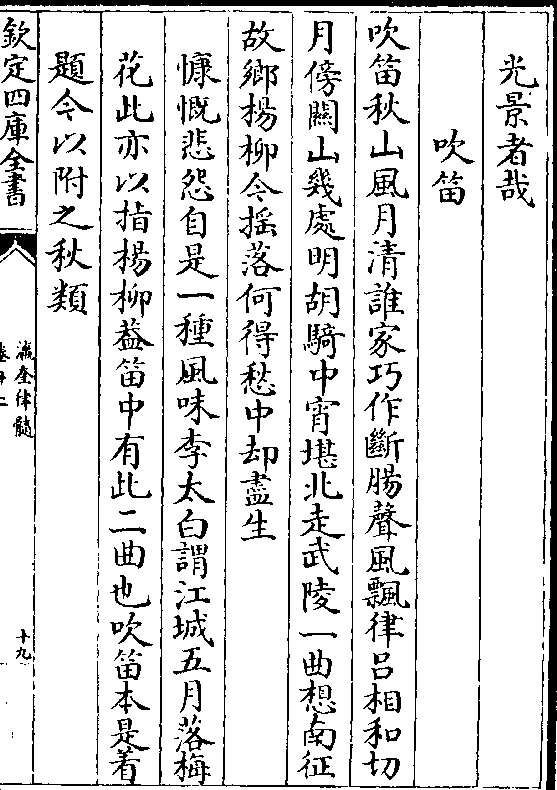 光景者哉
吹笛
吹笛秋山風月清誰家巧作斷腸聲風飄律呂相和切
月傍關山幾處明胡騎中宵堪北走武陵一曲想南征
故鄉楊柳今摇落何得愁中却盡生
慷慨悲怨自是一種風味李太白謂江城五月落梅
花此亦以指楊柳葢笛中有此二曲也吹笛本是着
題今以附之秋類
欽定四庫全書
瀛奎律髓
十九